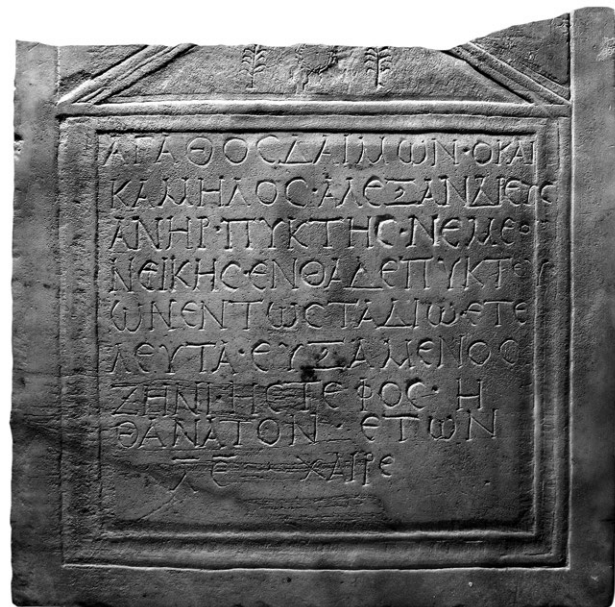 ΑΓΑΘΟϹΔΑΙΜΩΝ·ΟΚΑΙ
ΚΑΜΗΛΟϹ·ΑΛΕΞΑΝΔΡΕΥϹ
ΑΝΗΡ·ΠΥΚΤΗϹ·ΝΕΜΕΟ
ΝΕΙΚΗϹ·ΕΝΘΑΔΕΠΥΚΤΕΥ
ΩΝΕΝΤΩϹΤΑΔΙΩ·ΕΤΕ
ΛΕΥΤΑ·ΕΥΞΑΜΕΝΟϹ
ΖΗΝΙ·ΗϹΤΕΦΟϹ·Η
ΘΑΝΑΤΟΝ·ΕΤΩΝ
Λ̅Ε̅ ΧΑΙΡΕ